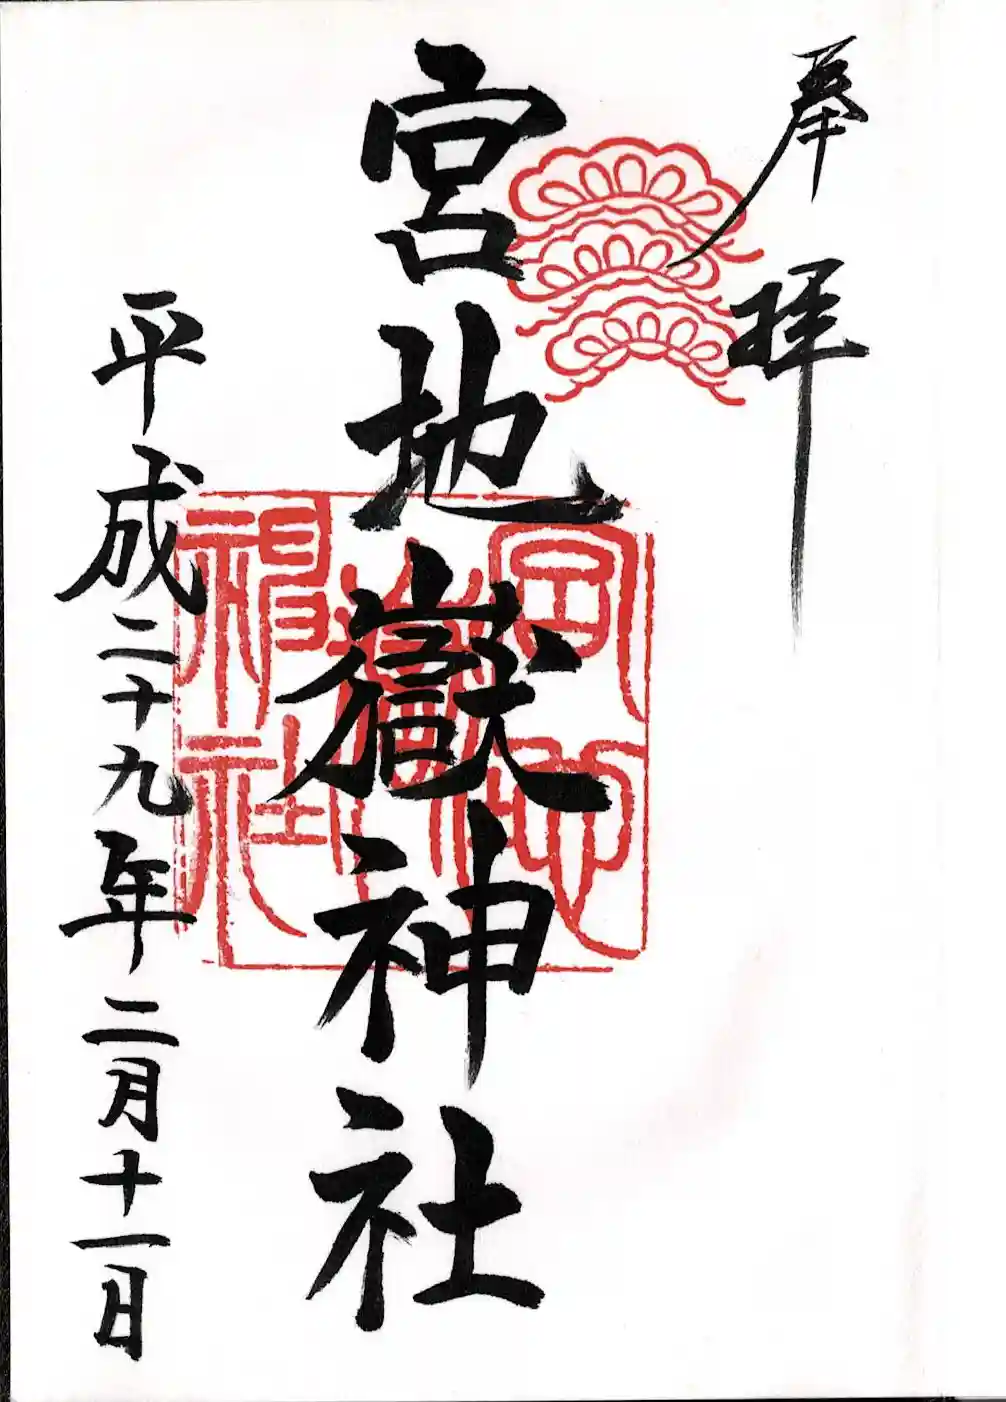 奉拝
宮地嶽神社
平成二十九年二月十一日
宮地嶽神社